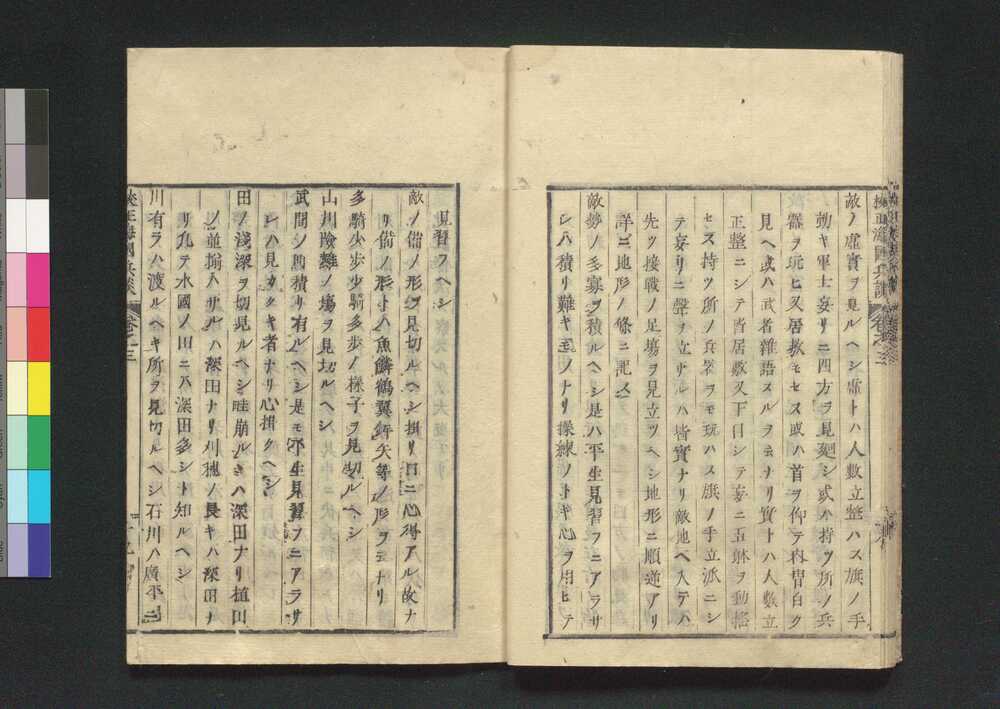 敵ノ虚實ヲ見ルヘシ虚トハ人數立整ハス旗ノ手
動キ軍士妄リニ四方ヲ見廻シ或ハ持ツ所ノ兵
器ヲ玩ヒ又居敷モセス或ハ首ヲ仰テ内冑白ク
見ヘ或ハ武者雜語スルヲ云ナリ實トハ人數立
正整ニシテ皆居敷又下目シテ妄ニ五躰ヲ動揺
セス持ツ所ノ兵器ヲモ玩ハス旗ノ手立派ニシ
テ妄リニ聲ヲ立サルハ皆實ナリ敵地ヘ入テハ
先ツ接戰ノ足塲ヲ見立ツヘシ地形ニ順逆アリ
詳ニ地形ノ條ニ記ス
敵勢ノ多寡ヲ積ルヘシ是ハ平生見習フニアラサ
レハ積リ難キモノナリ操練ノトキ心ヲ用ヒテ
見習フヘシ
敵ノ備ノ形ヲ見切ルヘシ掛リ口ニ心得アル故ナ
リ備ノ形トハ魚鱗鶴翼鋒矢等ノ形ヲ云ナリ
多騎少歩少騎多歩ノ様子ヲ見切ルヘシ
山川險難ノ塲ヲ見切ルヘシ
武間ノ町積リ有ルヘシ是モ平生見習フニアラサ
レハ見カタキ者ナリ心掛クヘシ
田ノ淺深ヲ切見ルヘシ畦崩ルヽハ深田ナリ植田
ノ並揃ハサルハ深田ナリ刈穂ノ長キハ深田ナ
リ九テ水國ノ田ニハ深田多シト知ルヘシ
川有ラハ渡ルヘキ所ヲ見切ルヘシ石川ハ廣平ニ
校正海國兵談
卷之三